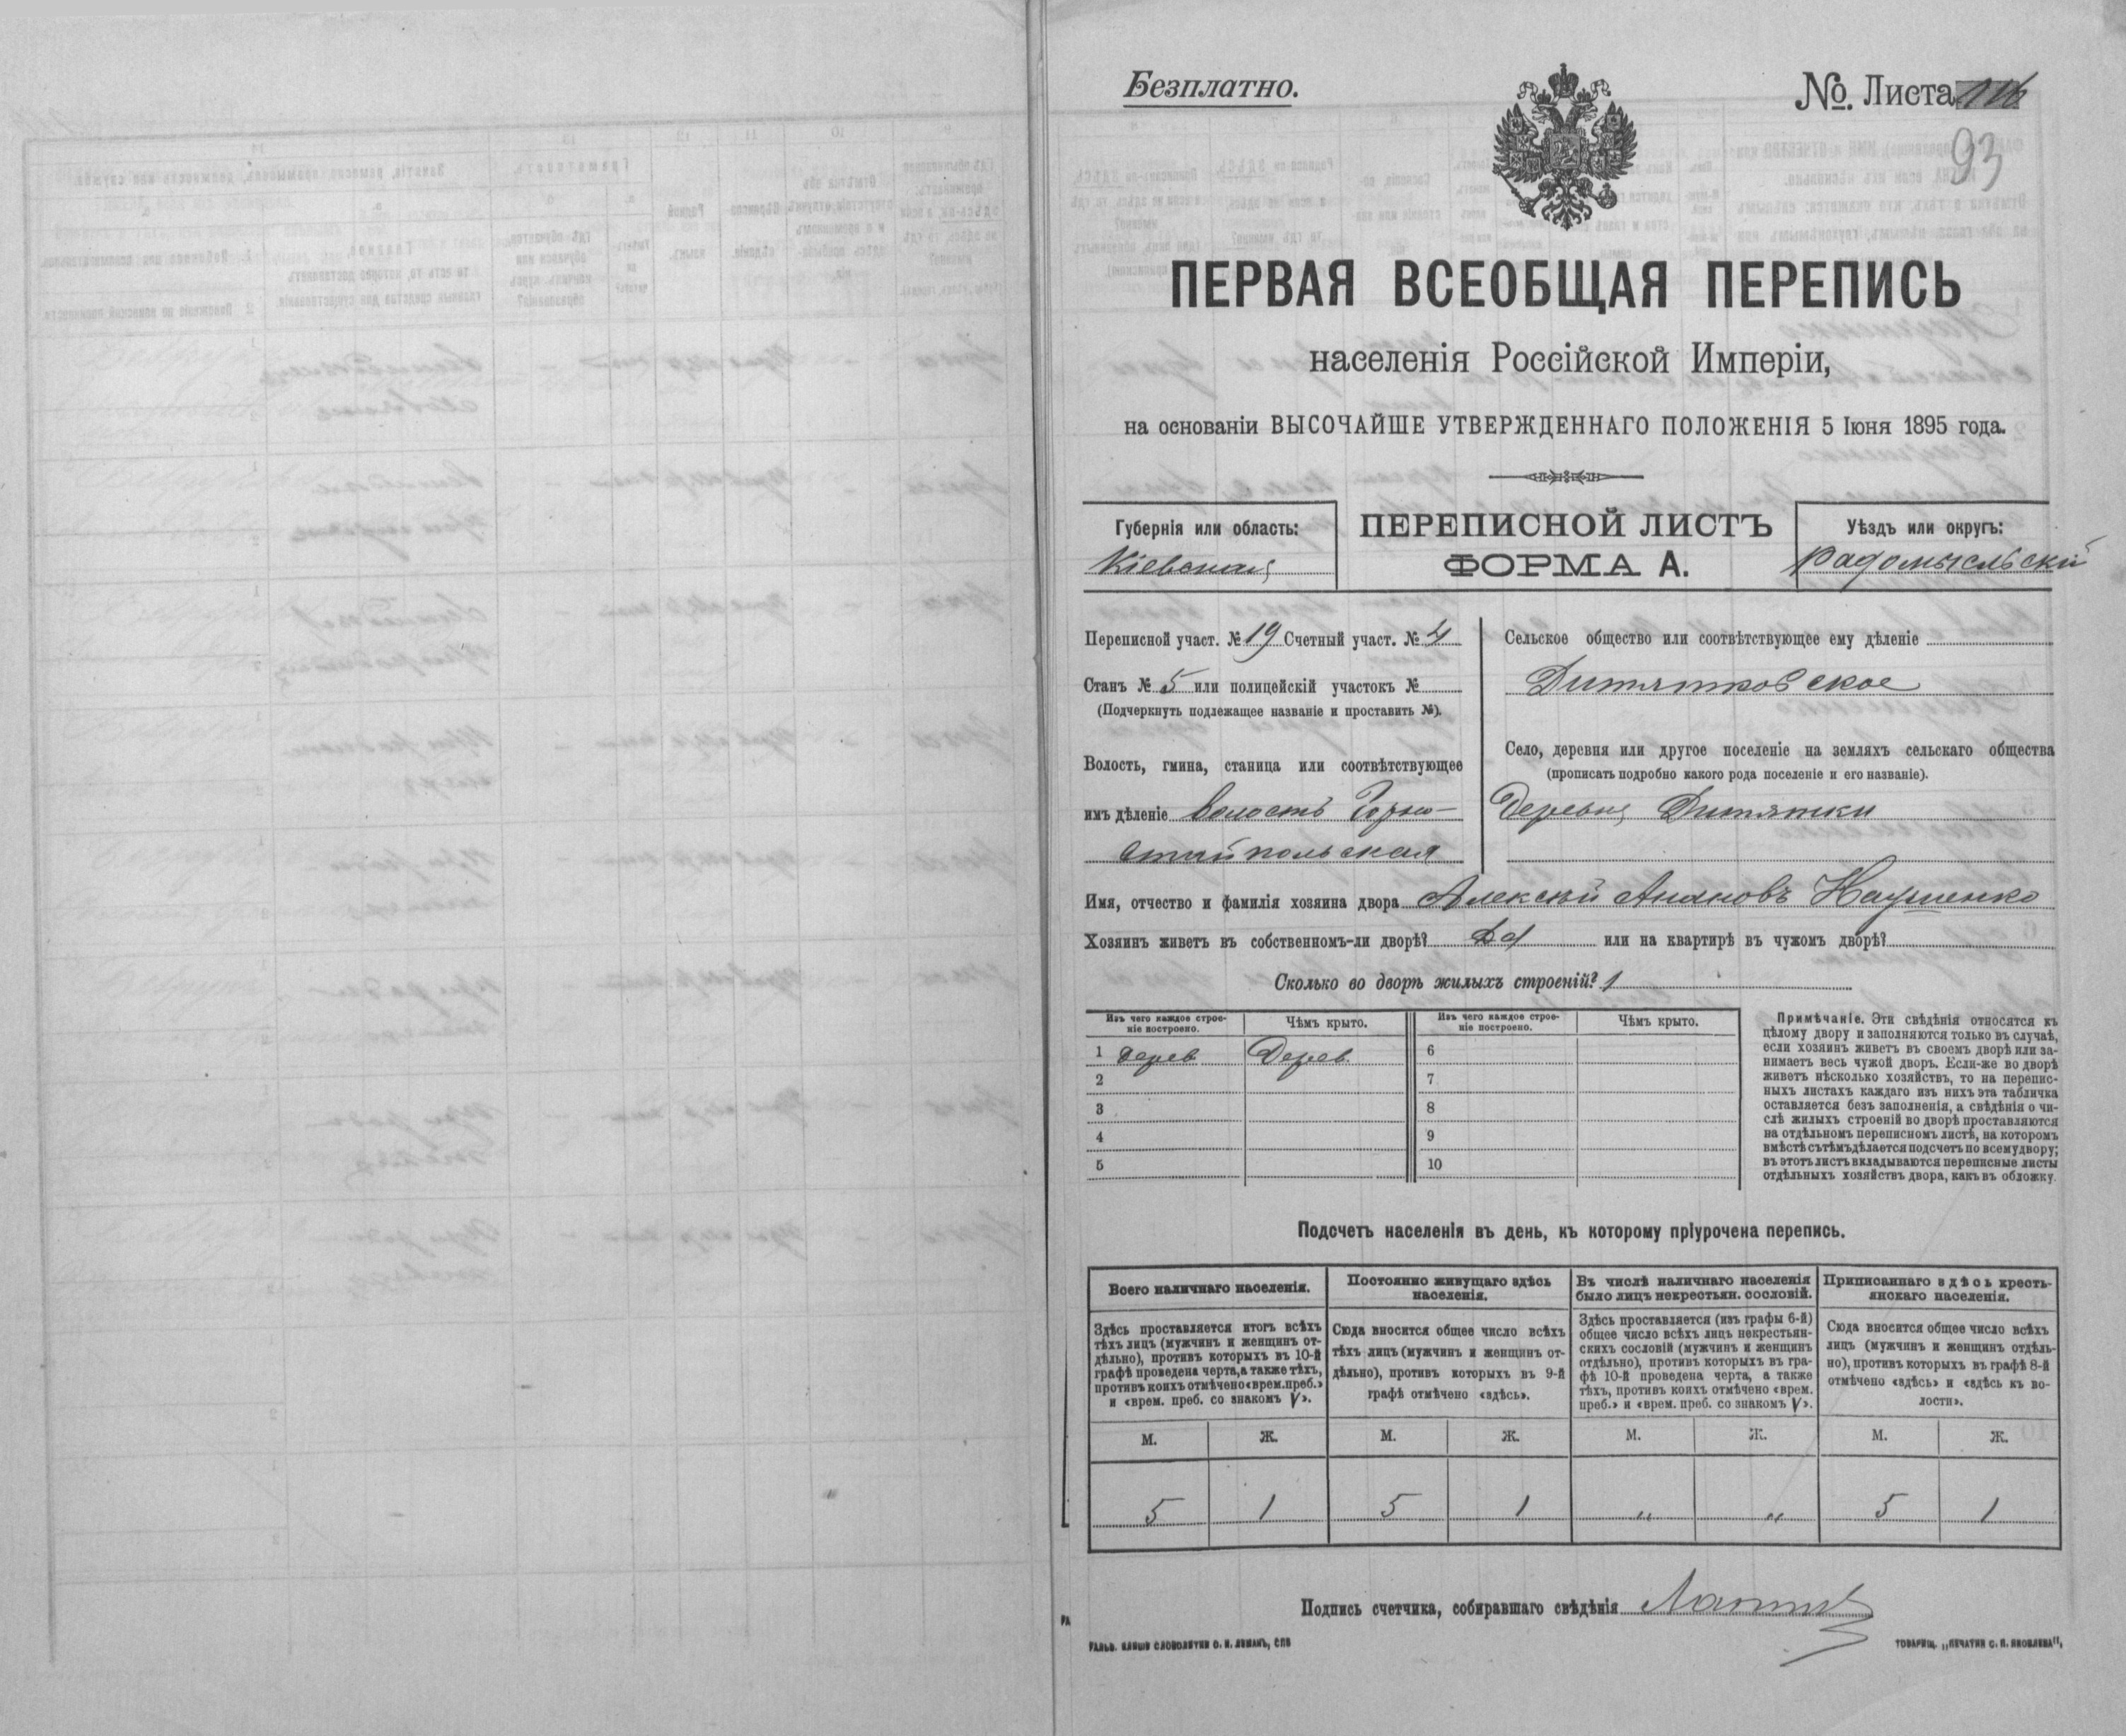 Безплатно.
№. Листа 116
93
ПЕРВАЯ ВСЕОБЩАЯ ПЕРЕПИСЬ
населенія Россійской Имперіи,
на основаніи ВЫСОЧАЙШЕ УТВЕРЖДЕННАГО ПОЛОЖЕНІЯ 5 Іюня 1895 года.
Губернія или область:
Кіевская
ПЕРЕПИСНОЙ ЛИСТЪ
ФОРМА А.
Уѣздъ или округъ:
Радомысльскій
Переписной участ. № 19 Счетный участ. № 4
Станъ № 5 или полицейскій участокъ №
(Подчеркнуть подлежащее названіе и проставить №).
Волость, гмина, станица или соотвѣтствующее
имъ дѣленіе волость Горно-
стайпольская
Сельское общество или соотвѣтствующее ему дѣленіе
Дитятковское
Село, деревня или другое поселеніе на земляхъ сельскаго общества
(прописать подробно какого рода поселеніе и его названіе).
Деревня Дитятки
Имя, отчество и фамилія хозяина двора Алексѣй
Хозяинъ живетъ въ собственномъ-ли дворѣ? Да или на квартирѣ въ чужомъ дворѣ?
Сколько во дворѣ жилыхъ строеній? 1
Изъ чего каждое строе-
ніе построено.
Чѣмъ крыто.
Изъ чего каждое строе-
ніе построено.
Чѣмъ крыто.
1 дерев. Дерев. 6
2 7
3 8
4 9
5 10
Примѣчаніе. Эти свѣдѣнія относятся къ
цѣлому двору и заполняются только въ случаѣ,
если хозяинъ живетъ въ своемъ дворѣ или за-
нимаетъ весь чужой дворъ. Если-же во дворѣ
живетъ нѣсколько хозяйствъ, то на перепис-
ныхъ листахъ каждаго изъ нихъ эта табличка
оставляется безъ заполненія, а свѣдѣнія о чи-
слѣ жилыхъ строеній во дворѣ проставляются
на отдѣльномъ переписномъ листѣ, на которомъ
вмѣстѣ съ тѣмъ дѣлается подсчетъ по всему двору;
въ этотъ листъ вкладываются переписные листы
отдѣльныхъ хозяйствъ двора, какъ въ обложку.
Подсчетъ населенія въ день, къ которому пріурочена перепись.
Всего наличнаго населенія.
Здѣсь проставляется итогъ всѣхъ
тѣхъ лицъ (мужчинъ и женщинъ от-
дѣльно), противъ которыхъ въ 10-й
графѣ проведена черта, а также тѣхъ,
противъ коихъ отмѣчено «врем. преб.»
и «врем. преб. со знакомъ V».
Постоянно живущаго здѣсь
населенія.
Сюда вносится общее число всѣхъ
тѣхъ лицъ (мужчинъ и женщинъ от-
дѣльно), противъ которыхъ въ 9-й
графѣ отмѣчено «здѣсь».
Въ числѣ наличнаго населенія
было лицъ некрестьян. сословій.
Здѣсь проставляется (изъ графы 6-й)
общее число всѣхъ лицъ некрестьян-
скихъ сословій (мужчинъ и женщинъ
отдѣльно), противъ которыхъ въ гра-
фѣ 10-й проведена черта, а также
тѣхъ, противъ коихъ отмѣчено «врем.
преб.» и «врем. преб. со знакомъ V».
Приписаннаго здѣсь кресть-
янскаго населенія.
Сюда вносится общее число всѣхъ
лицъ (мужчинъ и женщинъ отдѣль-
но), противъ которыхъ въ графѣ 8-й
отмѣчено «здѣсь» и «здѣсь къ во-
лости».
М. Ж. М. Ж. М. Ж. М. Ж.
5 1 5 1 „ „ 5 1
Подпись счетчика, собиравшаго свѣдѣнія
ГАЛЬВ. КЛИШЕ СЛОВОЛИТНИ О. И. ЛЕМАНЪ, СПБ
ТОВАРИЩ. „ПЕЧАТНЯ С. П. ЯКОВЛЕВА",